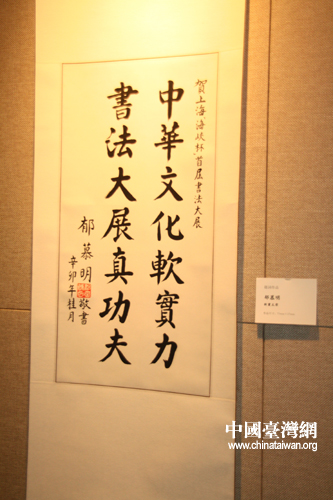 賀上海海峽杯首届書法大展
中華文化軟實力
書法大展真功夫
郁慕明敬書
辛卯年桂月
郁慕明
中國臺灣網
www.chinataiwan.org